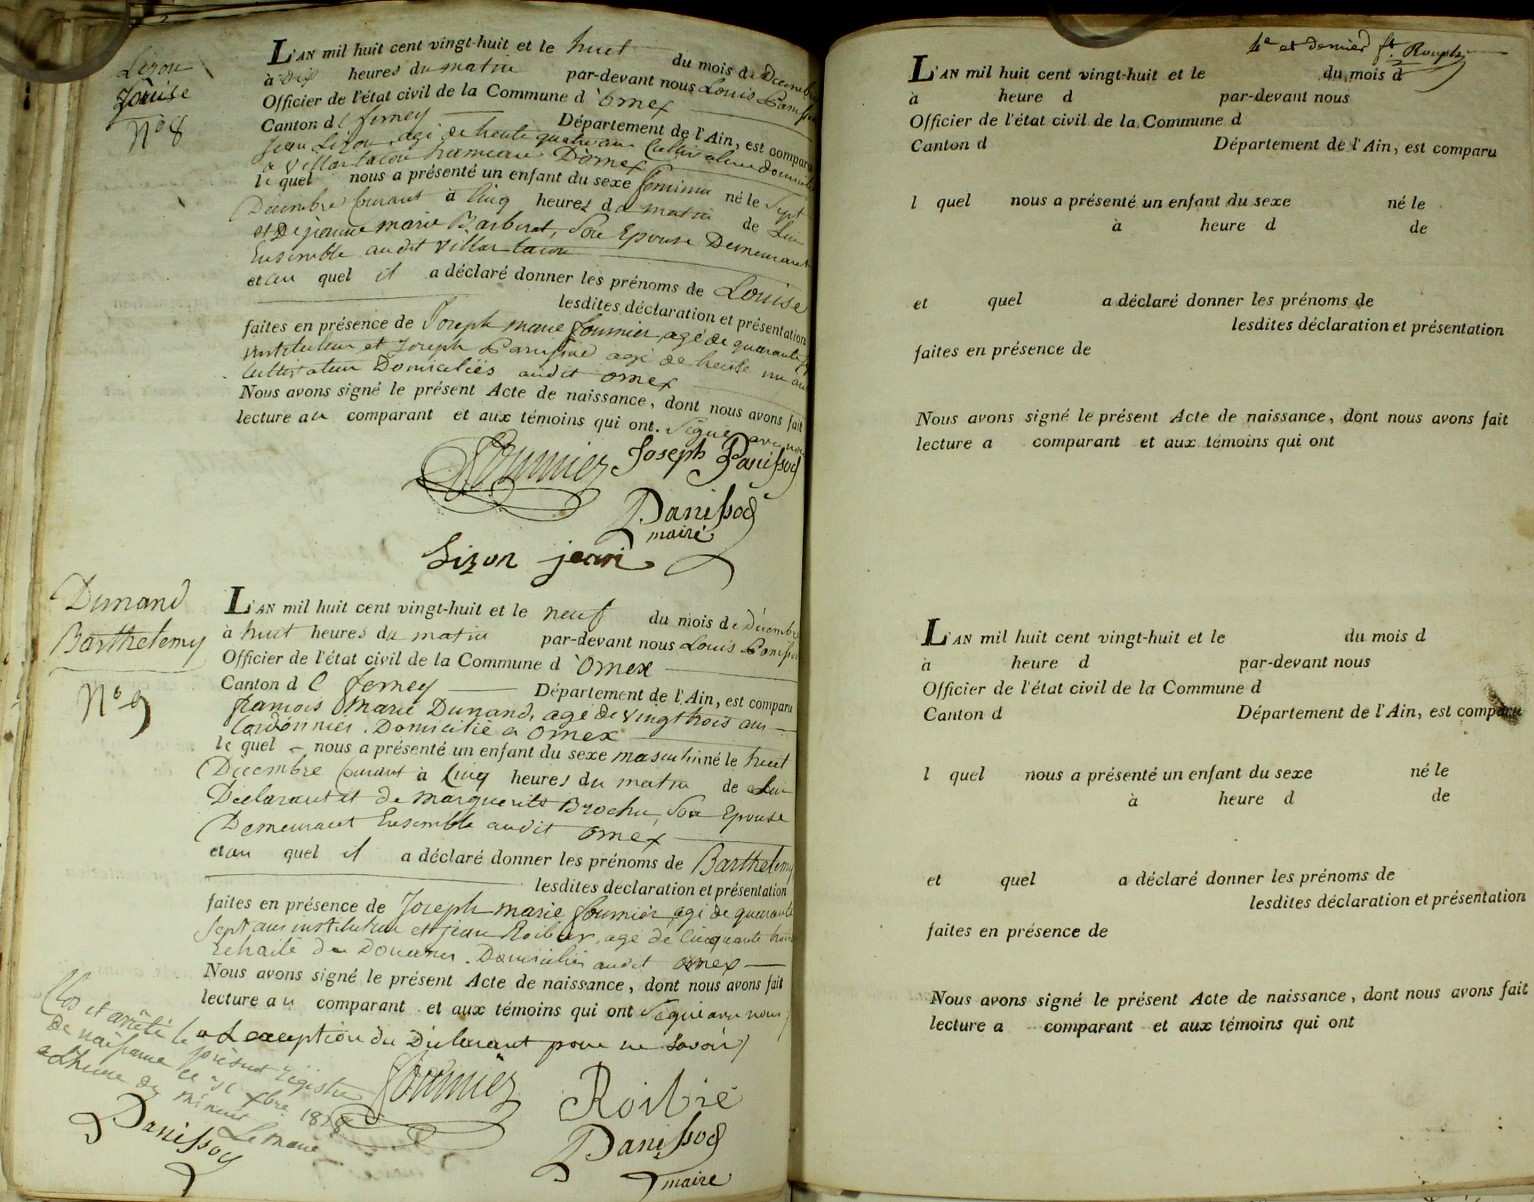 Lizon
Louise
N° 8
L'AN mil huit cent vingt-huit et le huit du mois de Decembre
à heures du matin par-devant nous Louis Panissod
Officier de l'état civil de la Commune d'ornex
Canton de ferney Département de l'Ain, est comparu
jean Lizon, agé de trente quatre ans Cultivateur domicilié
a Villar tacon hameau D'ornex
le quel nous a présenté un enfant du sexe feminin né le Sept
Decembre Courant à Cinq heures du matin de Lui
et De jeanne marie Barberat, Son Epouse Demeurant
Ensemble audit Villar tacon
et au quel il a déclaré donner les prénoms de Louise
lesdites déclaration et présentation
faites en présence de Joseph marie fournier, agé de quarante
instituteur et Joseph Panissod agé de trente un ans
Cultivateur Domiciliés audit ornex
Nous avons signé le présent Acte de naissance, dont nous avons fait
lecture au comparant et aux témoins qui ont. Signé avec nous
fournier Joseph Panissod
Panissod
maire
Lizon jean
Dunand
Barthelemy
N° 9
L'AN mil huit cent vingt-huit et le neuf du mois de décembre
à huit heures du matin par-devant nous Louis Panissod
Officier de l'état civil de la Commune d'ornex
Canton de ferney Département de l'Ain, est comparu
françois Marie Dunand, agé de vingt trois ans
Cordonnier. Domicilié a ornex
le quel nous a présenté un enfant du sexe masculin né le huit
Decembre Courant à Cinq heures du matin de Lui
Déclarant et de marguerite Brochu, Son Epouse
Demeurant Ensemble audit ornex
et au quel il a déclaré donner les prénoms de Barthelemy
lesdites declaration et présentation
faites en présence de Joseph marie fournier agé de quarante
Sept ans instituteur et jean Roibier, agé de Cinquante trois
retraité de Douanes. Domiciliés audit ornex
Nous avons signé le présent Acte de naissance, dont nous avons fait
lecture au comparant et aux témoins qui ont Signé avec nous
a L'exception du Déclarant pour ne savoir
fournier Roibié
Panissod
maire
Clos et arrêté le présent registre
de naissance le 31 xbre 1828
a L'heure de minuit
Le maire
Panissod
4e et dernier ft
L'AN mil huit cent vingt-huit et le du mois d
à heure d par-devant nous
Officier de l'état civil de la Commune d
Canton d Département de l'Ain, est comparu
l quel nous a présenté un enfant du sexe né le
à heure d de
et quel a déclaré donner les prénoms de
lesdites déclaration et présentation
faites en présence de
Nous avons signé le présent Acte de naissance, dont nous avons fait
lecture a comparant et aux témoins qui ont
L'AN mil huit cent vingt-huit et le du mois d
à heure d par-devant nous
Officier de l'état civil de la Commune d
Canton d Département de l'Ain, est comparu
l quel nous a présenté un enfant du sexe né le
à heure d de
et quel a déclaré donner les prénoms de
lesdites déclaration et présentation
faites en présence de
Nous avons signé le présent Acte de naissance, dont nous avons fait
lecture a comparant et aux témoins qui ont